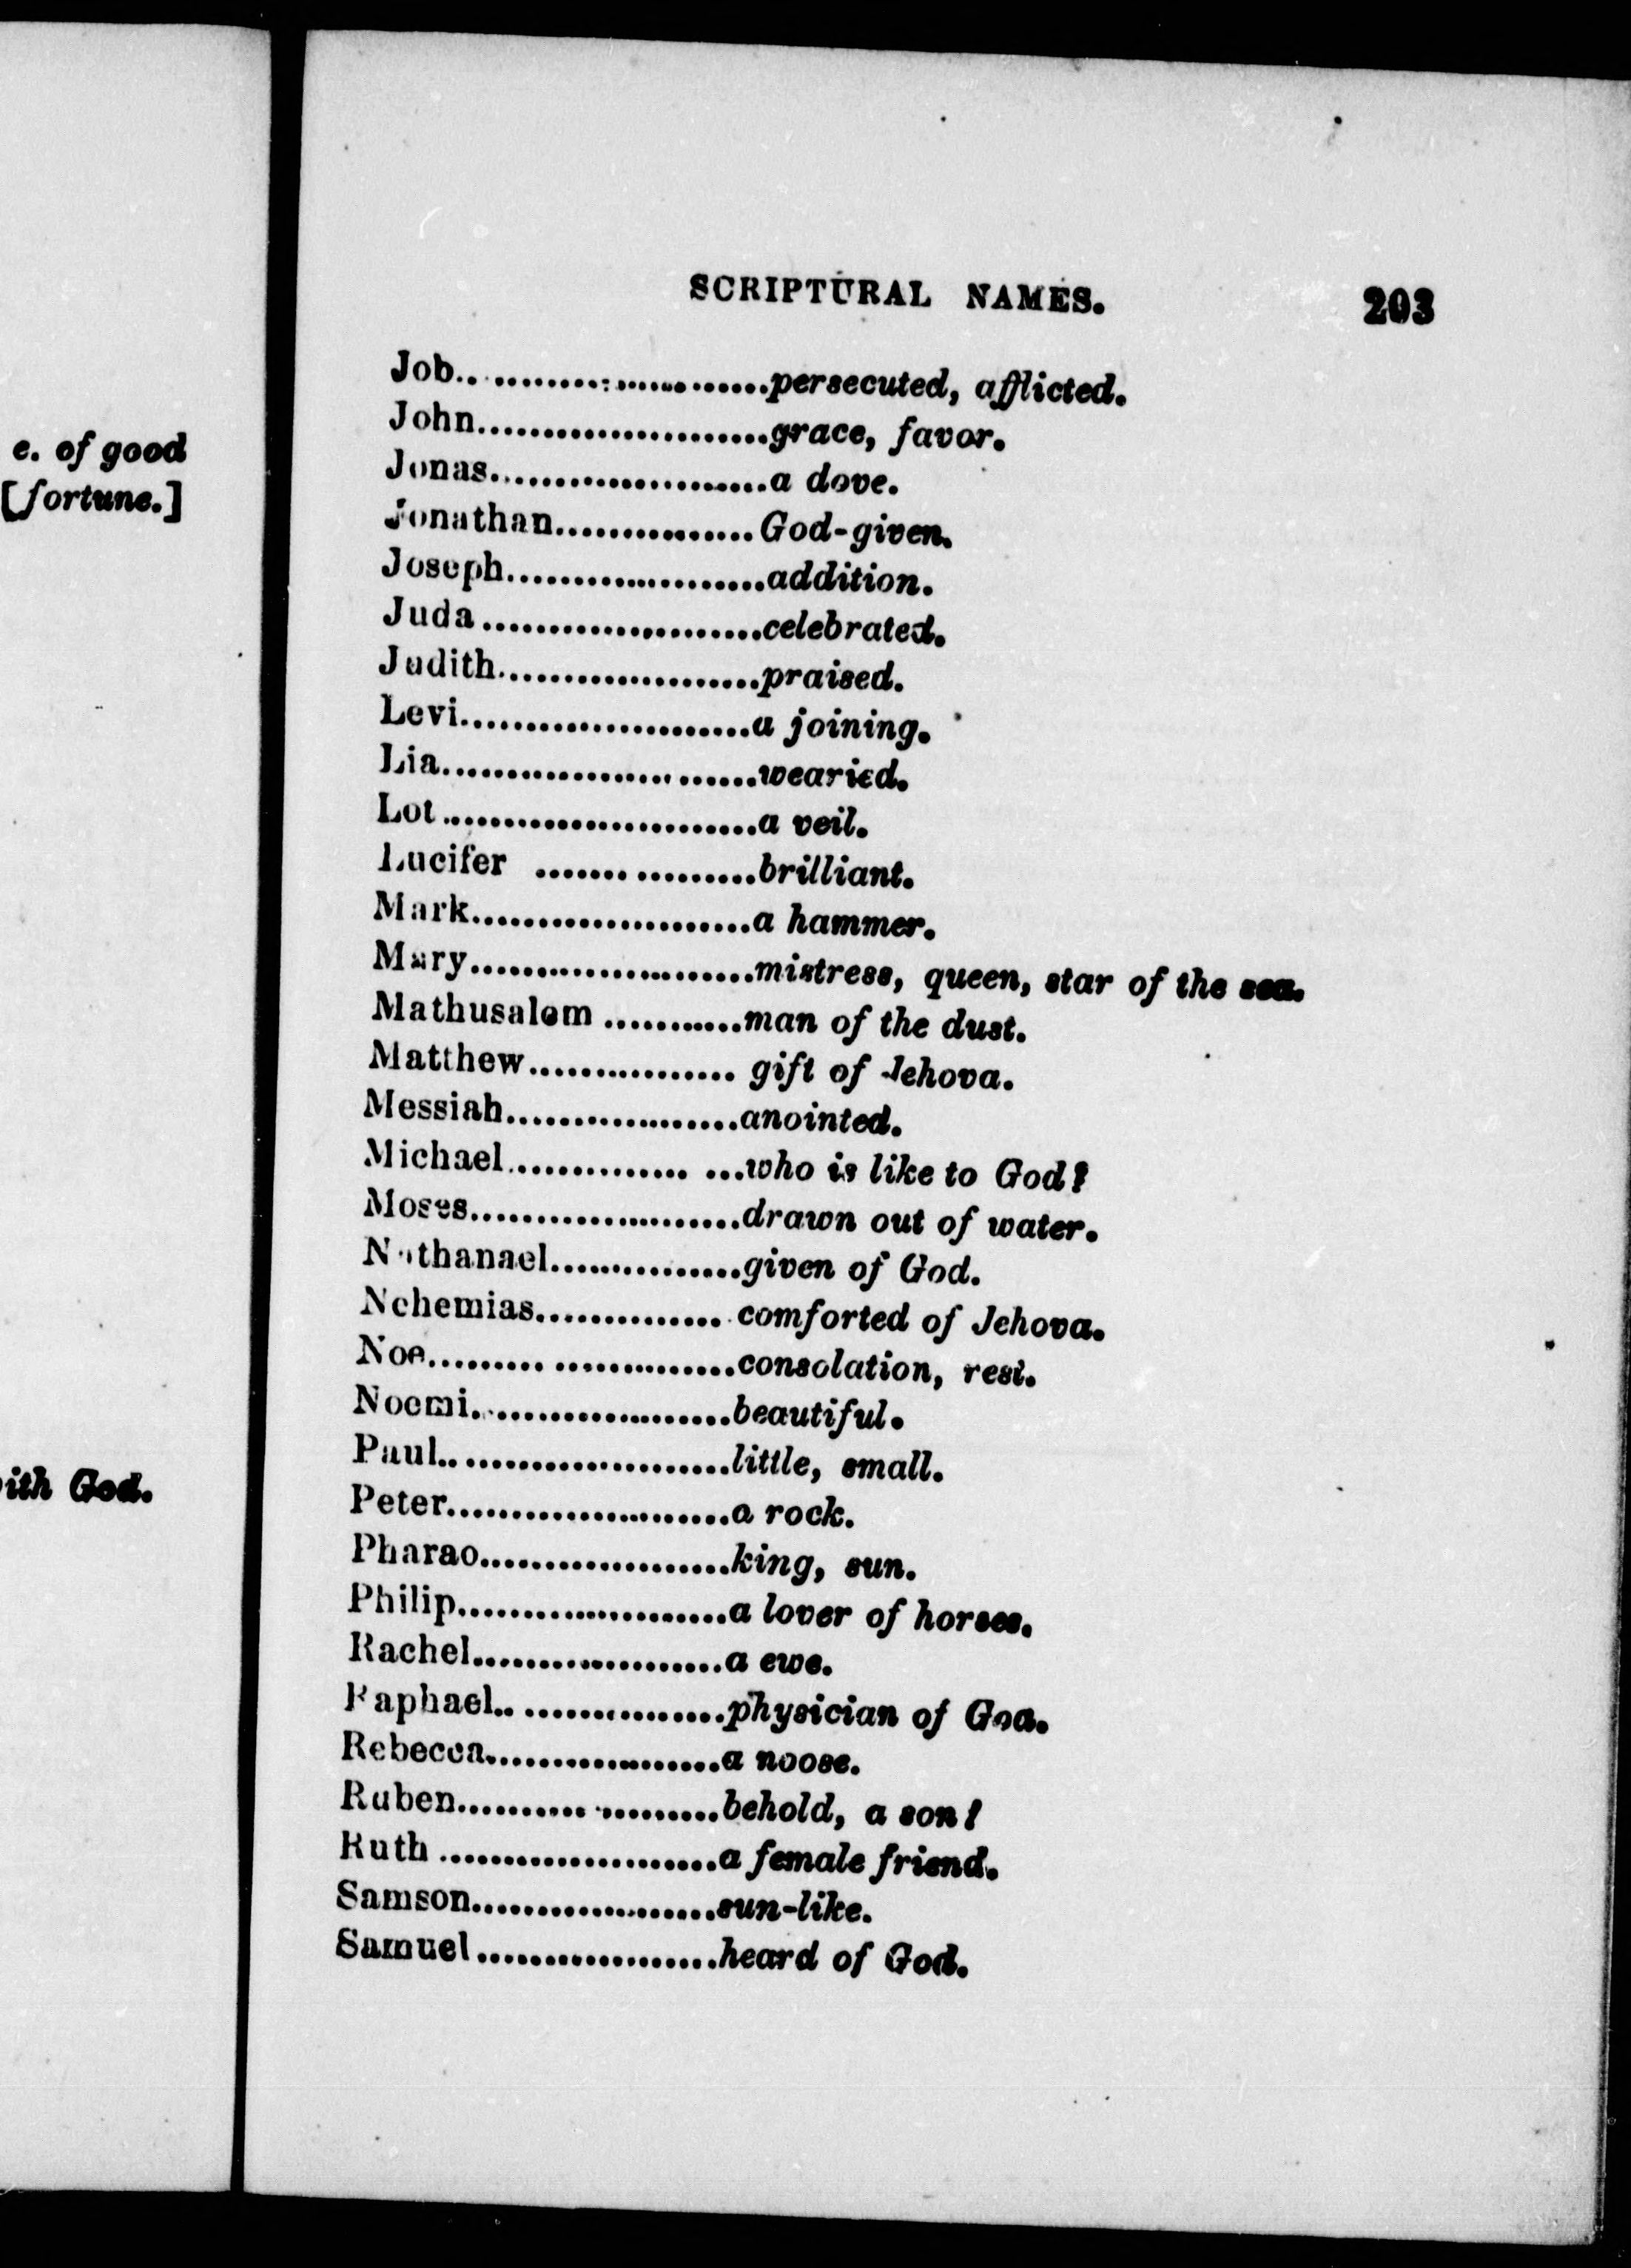 e. of good
[fortune.]
ith God.
SCRIPTURAL NAMES. 203
Job..........................persecuted, afflicted.
John......................grace, favor.
Jonas.....................a dove.
Jonathan............... God-given.
Joseph....................addition.
Juda .....................celebrated.
Judith....................praised.
Levi......................a joining.
Lia........................wearied.
Lot ........................a veil.
Lucifer ................brilliant.
Mark.....................a hammer.
Mary......................mistress, queen, star of the sea.
Mathusalem ...........man of the dust.
Matthew................ gift of Jehova.
Messiah..................anointed.
Michael.............. ...who is like to God?
Moses.....................drawn out of water.
Nathanael...............given of God.
Nehemias.............. comforted of Jehova.
Noe......... ..............consolation, rest.
Noemi....................beautiful.
Paul.......................little, small.
Peter......................a rock.
Pharao...................king, sun.
Philip.....................a lover of horses.
Rachel...................a ewe.
Raphael.. ...............physician of God.
Rebecca..................a noose.
Ruben.......... .........behold, a son!
Ruth .....................a female friend.
Samson...................sun-like.
Samuel ..................heard of God.